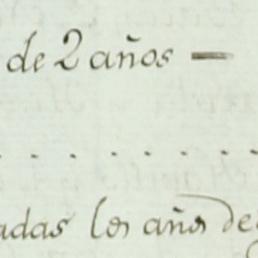 de 2 años —
. . . . . . . . .
adas los años de